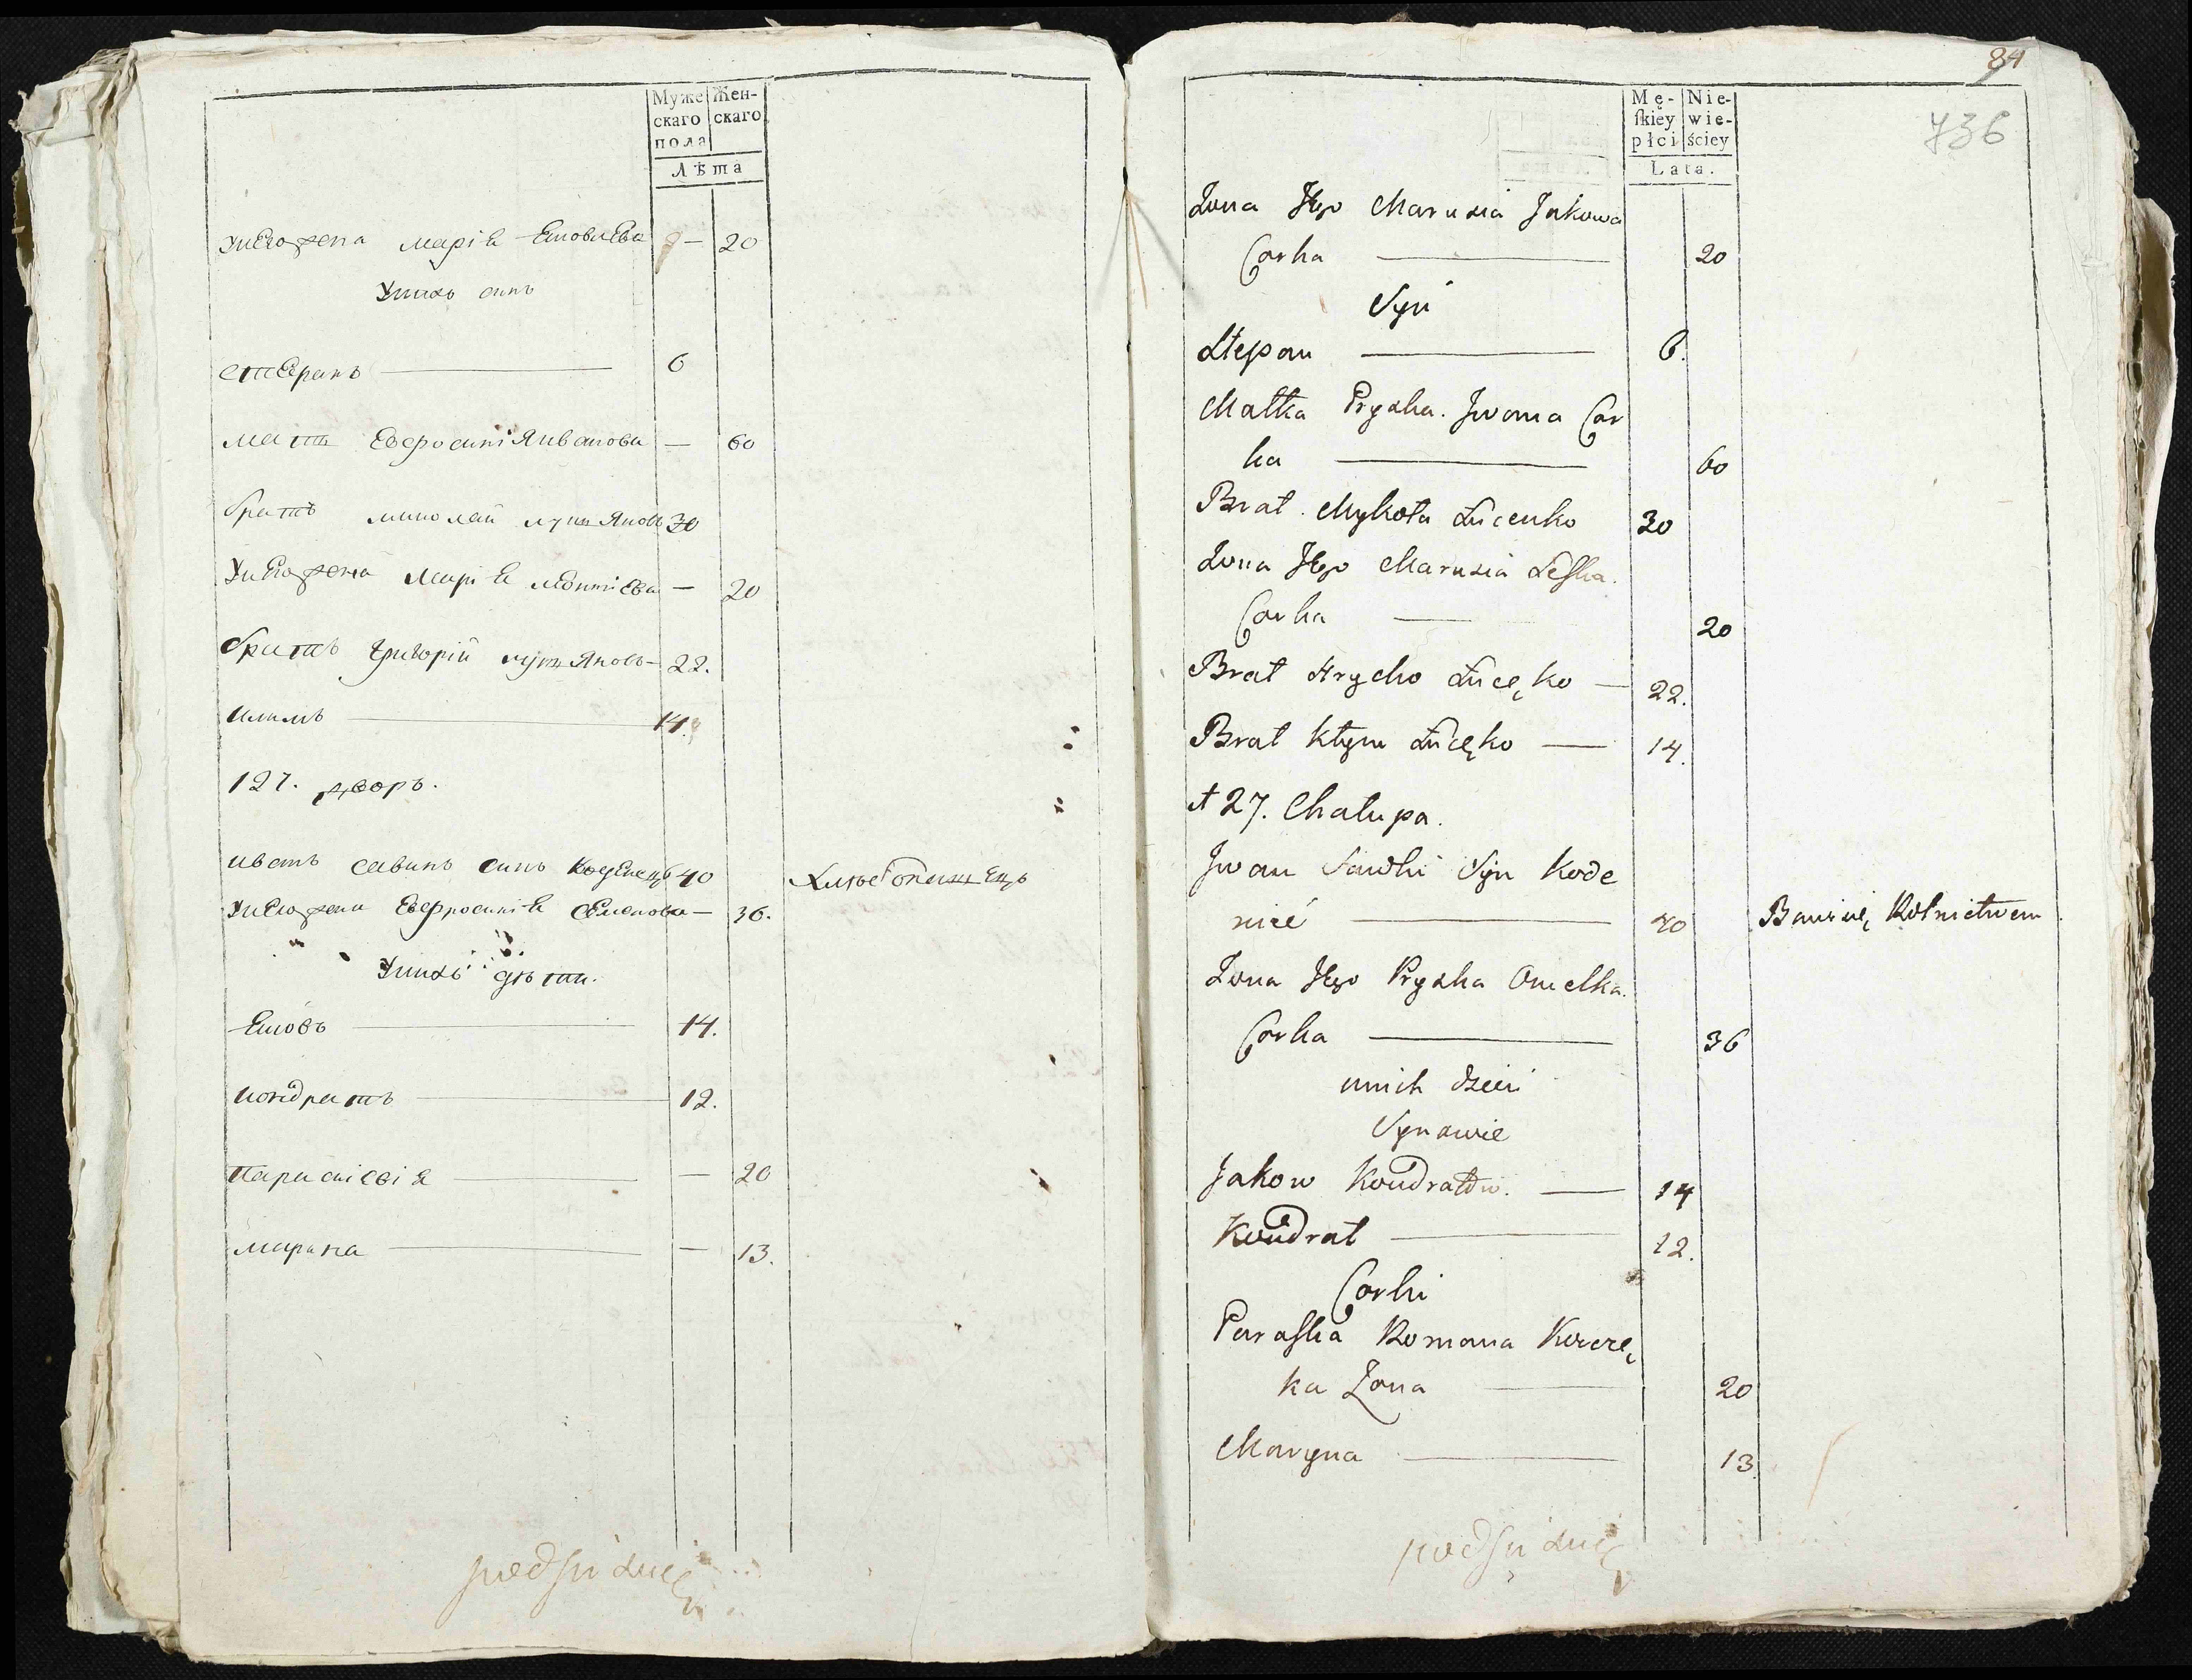 Муже
скаго
пола
Жен-
скаго
Лѣта
Унего жена Марія Ековлева — 20
Унихъ сынъ
Степанъ 6
Мать Евфросинія Иванова — 60
Братъ Николай Лукьяновъ 30
Унего жена Марія Леонтіева — 20
Братъ Григорій Лукьяновъ 22.
Климъ 14.
127. дворъ.
Иванъ Савинъ сынъ Коденецъ 40 Хлѣбопашецъ
Унего жена Евфросинія Семенова — 36.
Унихъ дѣти.
Ековъ 14.
Кондратъ 12.
Параскевія — 20
Марина — 13.
84
736
Mę-
ſkiey
płci
Nie-
wie-
ściey
Lata.
Żona Jego Marusia Jakowa
Corka 20
Syn
Stepan 6.
Matka Pryska Iwana Cor
ka 60
Brat Mykoła Łucenko 30
Żona Jego Marusia Leſka
Corka 20
Brat Hrycko Łucęko — 22.
Brat Kłym Łucęko — 14.
127. Chałupa.
Iwan Sawki Syn Kode
niec 40 Bawi się Rolnictwem
Żona Jego Pryska Omelka
Corka 36
u nich dzieci
Synowie
Jakow Kondratow. — 14
Kondrat 12.
Corki
Paraſka Romana
ka Żona 20
Maryna 13